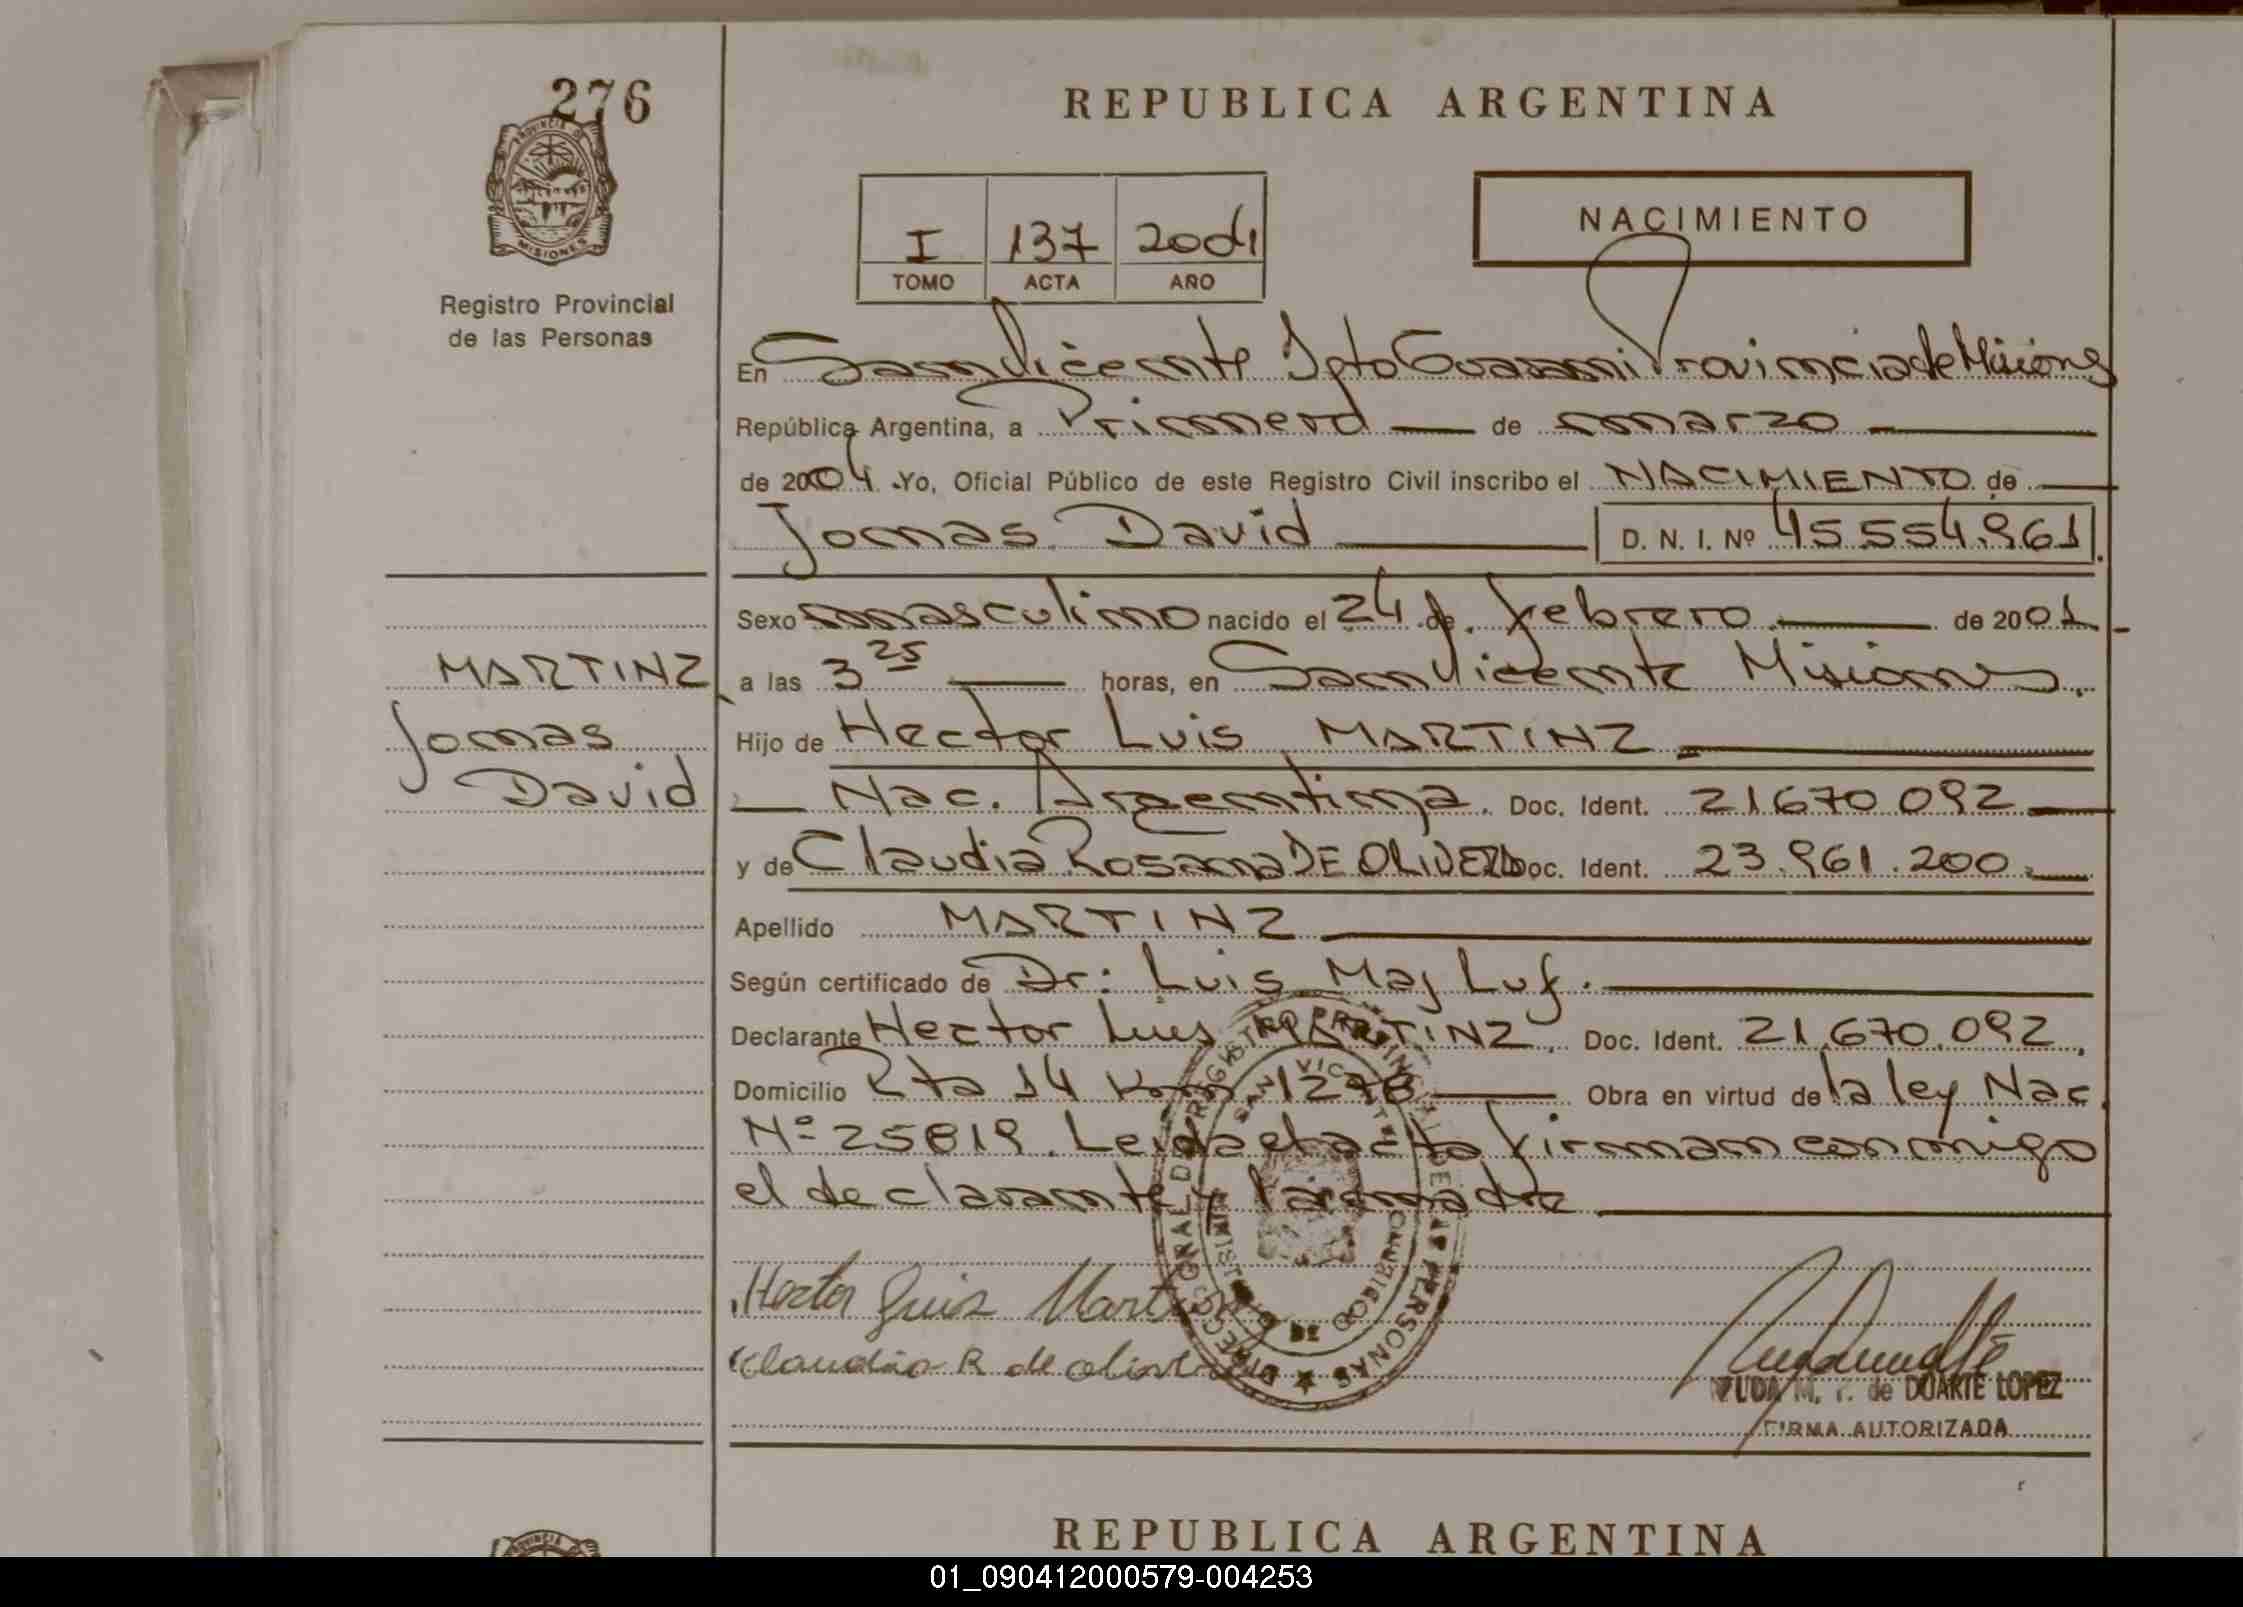 276
PROVINCIA DE
MISIONES
Registro Provincial
de las Personas
REPUBLICA ARGENTINA
I 137 2004
TOMO ACTA AÑO
NACIMIENTO
En San Vicente Dpto Guarani Provincia de Misiones
República Argentina, a Primero de marzo
de 2004. Yo, Oficial Público de este Registro Civil inscribo el NACIMIENTO de
Tomas David D. N. I. Nº 45.554.961
Sexo masculino nacido el 24 de febrero de 2001
MARTINZ
Tomas
David
a las 3 25 horas, en San Vicente Misiones
Hijo de Hector Luis MARTINZ
Nac. Argentina. Doc. Ident. 21670.092
y de Claudia Rosana DE OLIVERA Doc. Ident. 23.961.200
Apellido MARTINZ
Según certificado de Dr: Luis Maj Luf.
Declarante Hector Luis MARTINZ. Doc. Ident. 21.670.092
Domicilio Rta 14 Km 1278 Obra en virtud de la ley Nac.
Nº 25819. Leida el acta firman conmigo
el declarante y la madre
Hector Luis Martinz
Claudia R de
DIREC. GRAL. DEL REGISTRO PROVINCIAL DE LAS PERSONAS
SAN VICENTE
MINISTERIO DE GOBIERNO
M. T. de DUARTE LOPEZ
FIRMA AUTORIZADA
REPUBLICA ARGENTINA
01_090412000579-004253